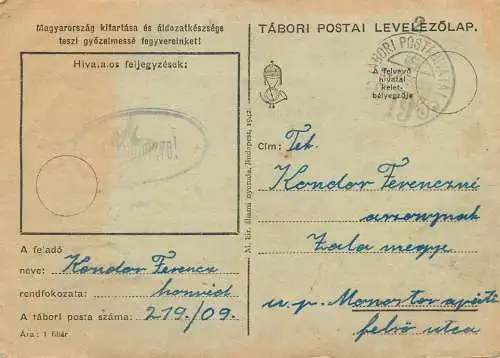 Magyarország kitartása és áldozatkészsége
teszi győzelmessé fegyvereinket!
Hivatalos feljegyzések:
A feladó
neve: Kondor Ferenc
rendfokozata: honvéd
A tábori posta száma: 219/09.
Ára: 1 fillér
M. kir. állami nyomda, Budapest, 1942
TÁBORI POSTAI LEVELEZŐLAP.
TÁBORI POSTAHIVATAL
A felvevő
hivatal
kelet-
bélyegzője
Cím: Tek.
Kondor Ferenczné
asszonynak
Zala megye
u. p. Monostorapáti
felső utca